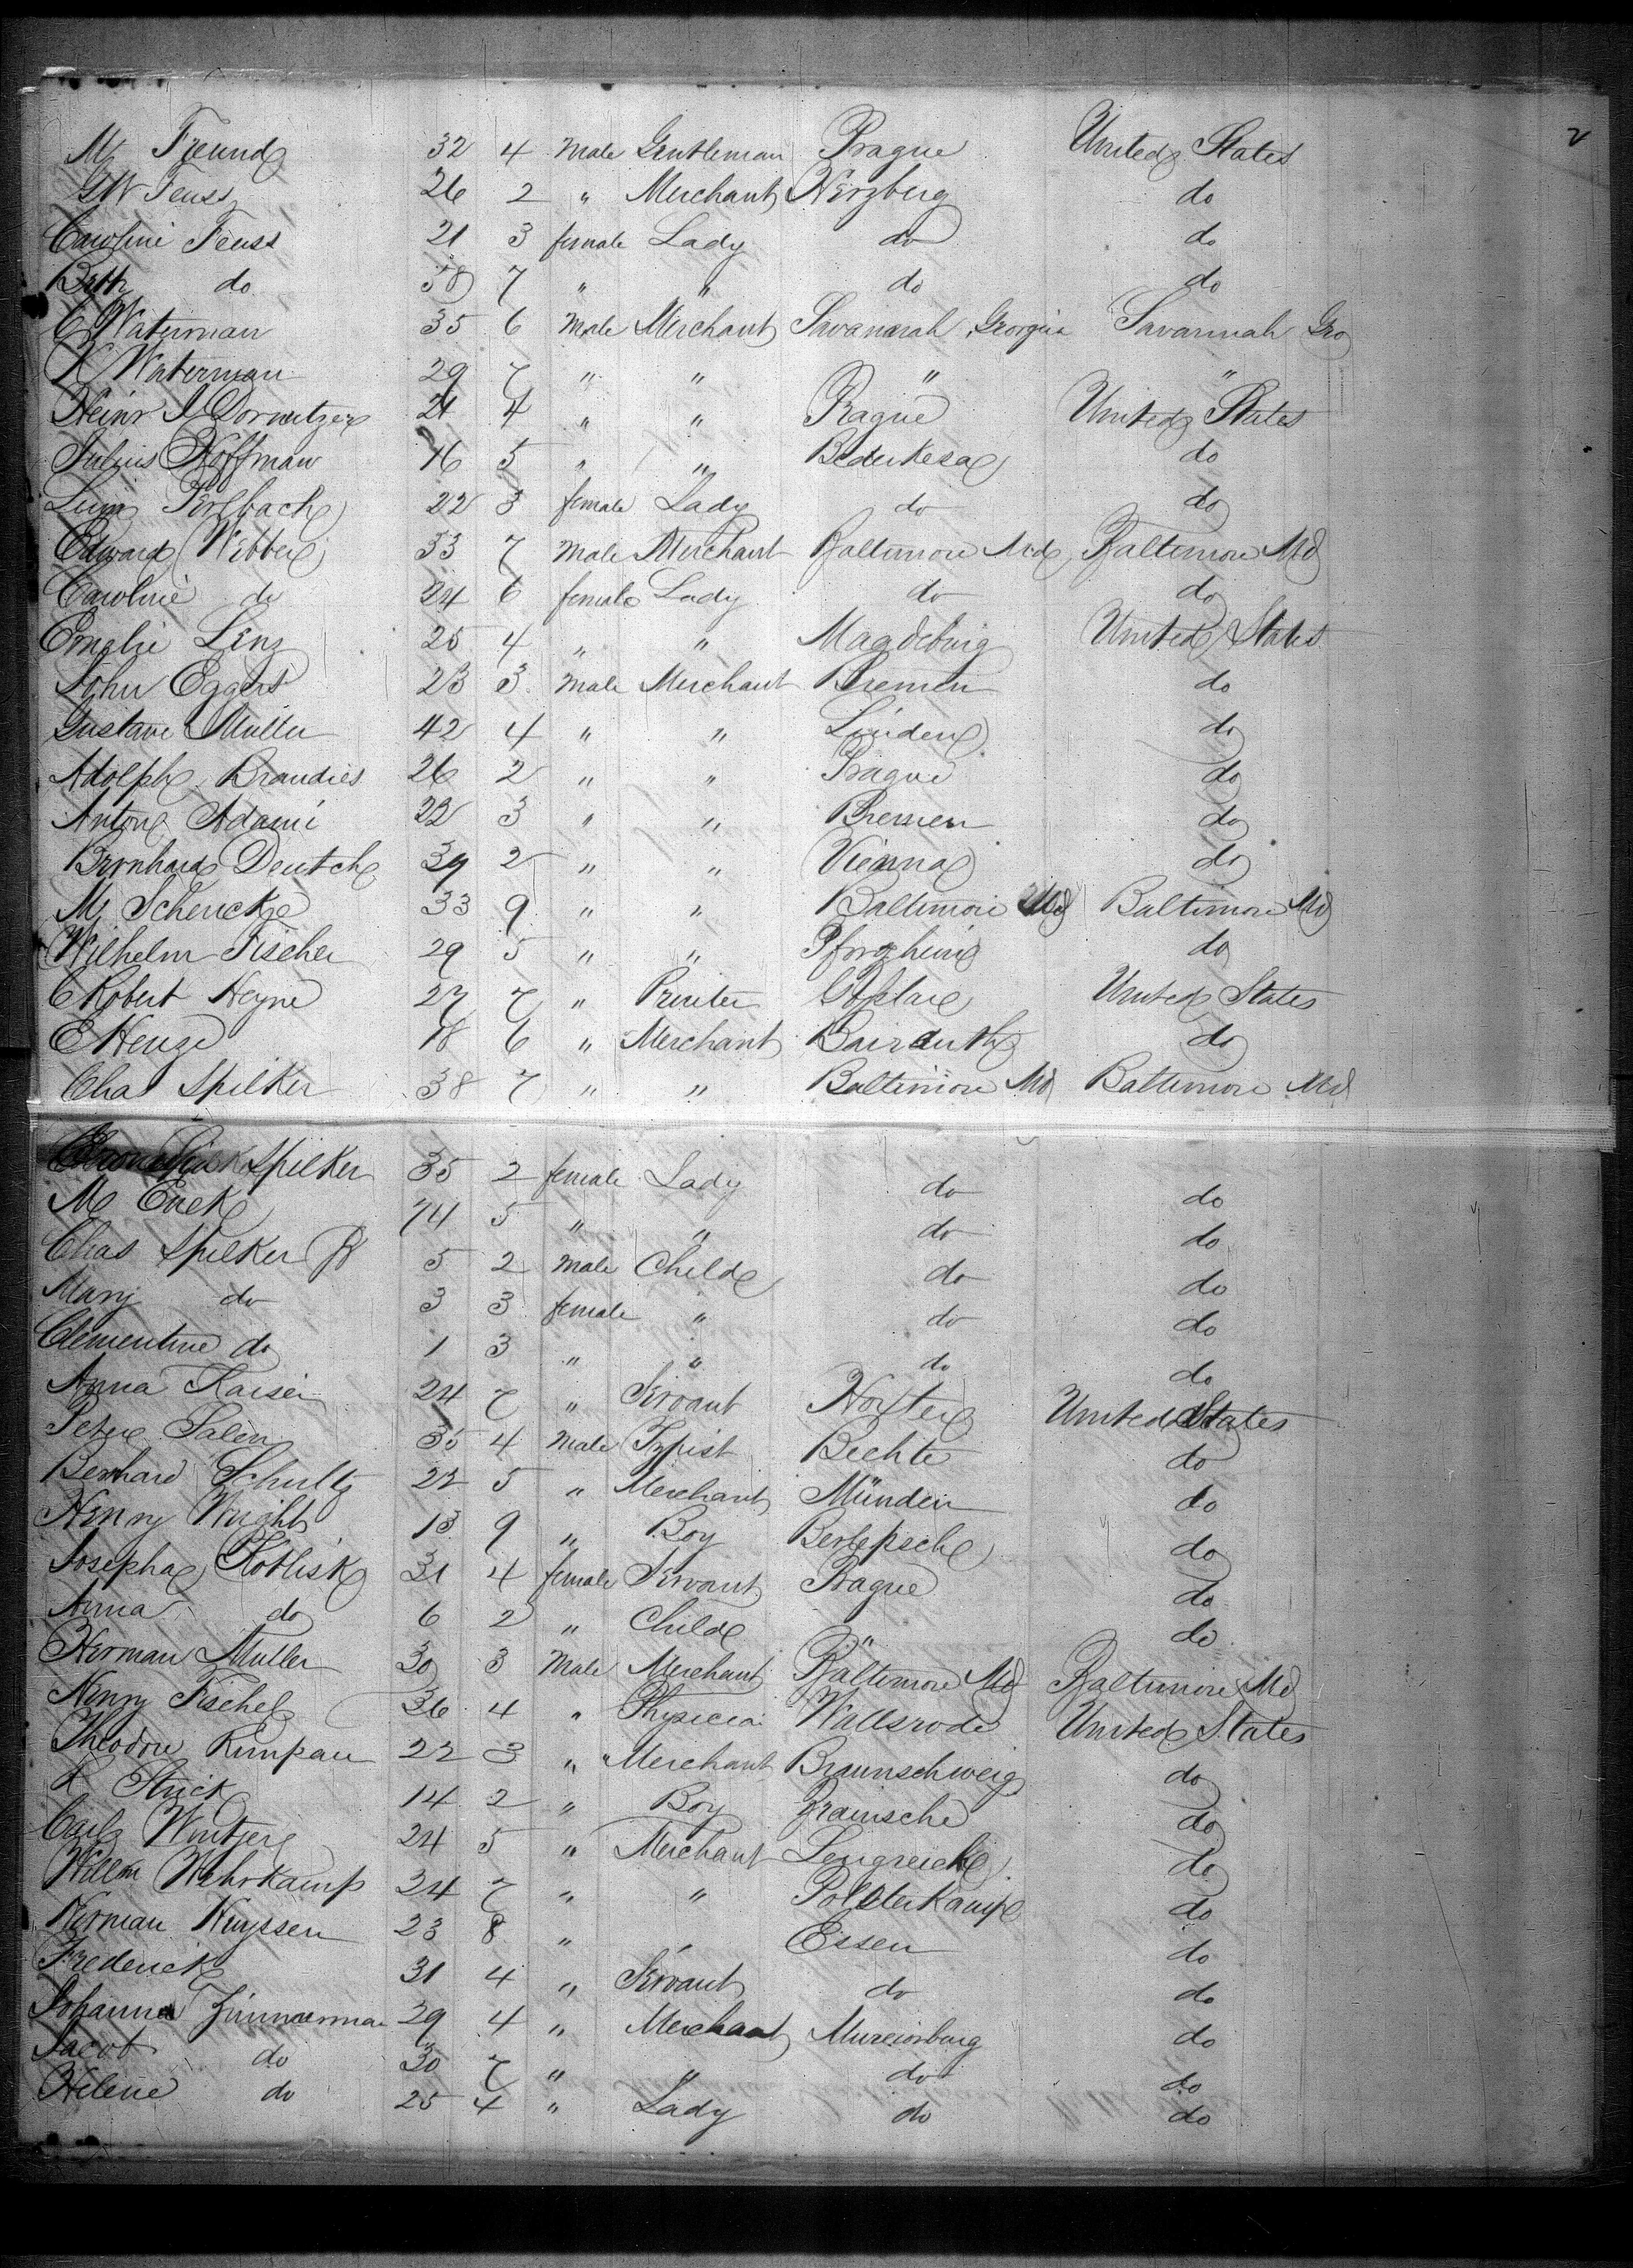 2
M Freund 32 4 Male Gentleman Prague United States
GW Feuss 26 2 " Merchant Herzberg do
Caroline Feuss 21 3 female Lady do do
Beth do 58 7 " " do do
C Waterman 35 6 Male Merchant Savannah Georgia Savannah Geo
K Waterman 29 7 " " " "
Heinr I Dormitzer 21 4 " " Prague United States
Julius Hoffman 16 5 " " Bederkesa do
22 3 female Lady do do
Edward Webber 33 7 Male Merchant Baltimore Md Baltimore Md
Caroline do 24 6 female Lady do do
Emelie Lenz 25 4 " " Magdeburg United States
John Eggers 23 3 Male Merchant Bremen do
Gustave Muller 42 4 " " Linden do
Adolph Brandies 26 2 " " Prague do
Anton Adami 22 3 " " Bremen do
Bernhard Deutch 39 2 " " Vienna do
M Schencke 33 9 " " Baltimore Md Baltimore Md
Wilhelm Fischer 29 5 " " Pforzheim do
C Robert Heyne 27 7 " Printer United States
E Henze 18 6 " Merchant Baireuth do
Chas Spilker 38 7 " " Baltimore Md Baltimore Md
Spilker 35 2 female Lady do do
M Enck 74 5 " " do do
Chas Spilker Jr 5 2 Male Child do do
Mary do 3 3 female " do do
Clementine do 1 3 " " do do
Anna Kaiser 24 7 " Servant Hoxter United States
Peter Salen 35 4 Male Typist Bechte do
Bernhard Schultz 22 5 " Merchant Münden do
Henry Wright 13 9 " Boy Berlepsch do
Josepha Kotlisk 31 4 female Servant Prague do
Anna do 6 2 " Child " do
Herman Muller 30 3 Male Merchant Baltimore Md Baltimore Md
Henry Fischel 36 4 " Physician Wallsrode United States
Theodore Rimpau 22 3 " Merchant Braunschweig do
L Strick 14 2 " Boy Bramsche do
Carl Wintjer 24 5 " Merchant Lengreich do
Willm Wehrkamp 24 7 " " Polsterkamp do
Herman Huyssen 23 8 " " Essen do
Frederick 31 4 " Servant do do
Johanna Zimmerman 29 4 " Merchant do
Jacob do 30 7 " " do do
Helene do 25 4 " Lady do do